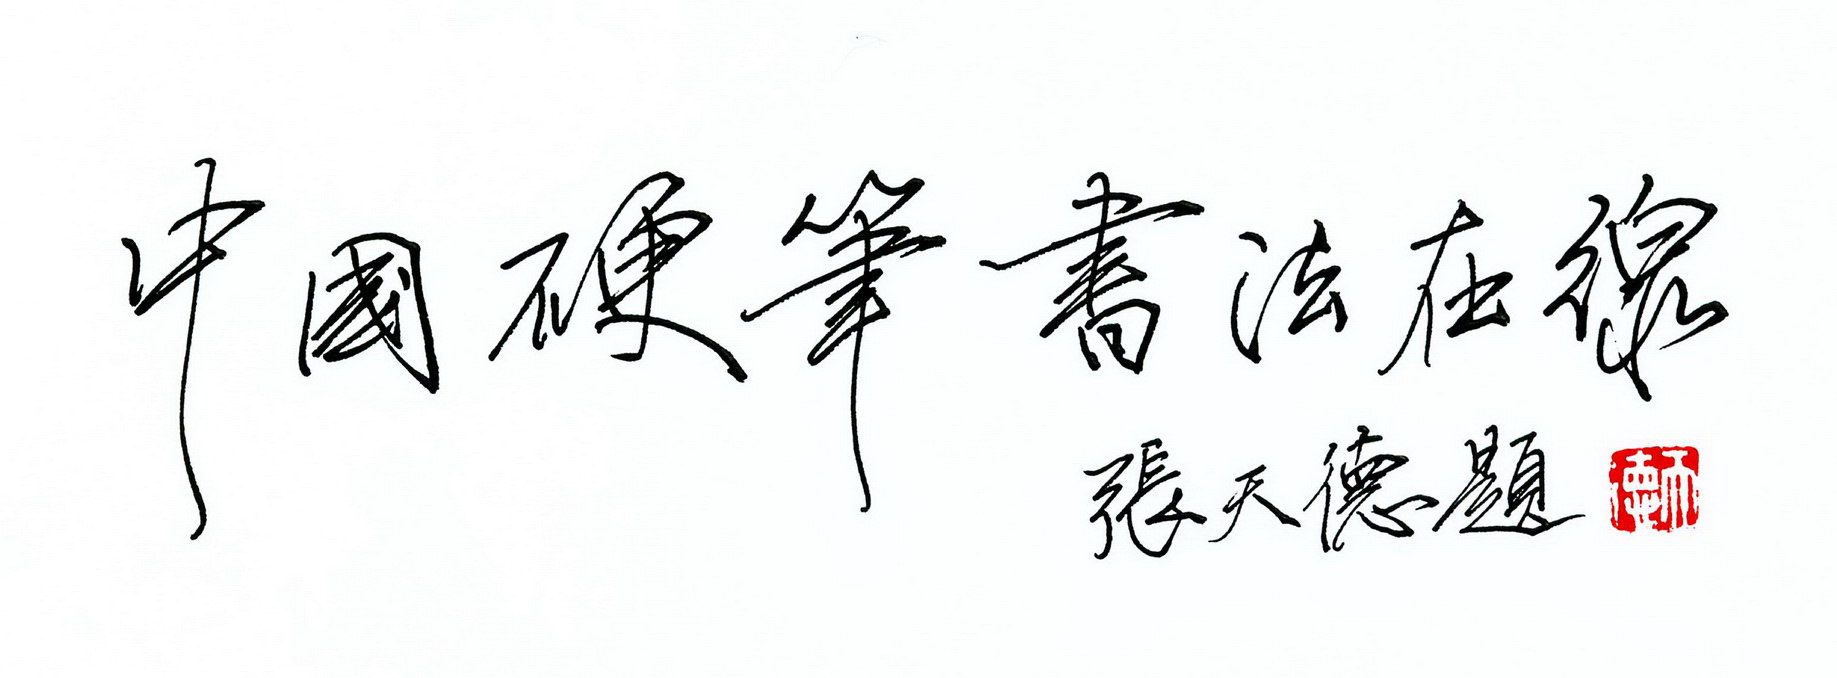 中國硬筆書法在線
張天德題
天德